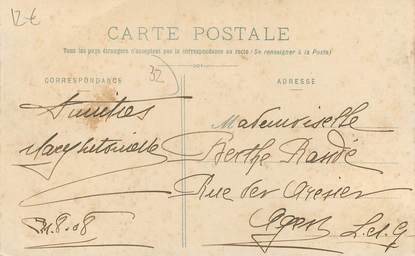 12 €
CARTE POSTALE
Tous les pays étrangers n'acceptent pas la correspondance au recto (Se renseigner à la Poste)
CORRESPONDANCE
32
ADRESSE
Amitiés
Mademoiselle
Berthe
Rue des
Agen L. et G
8-08